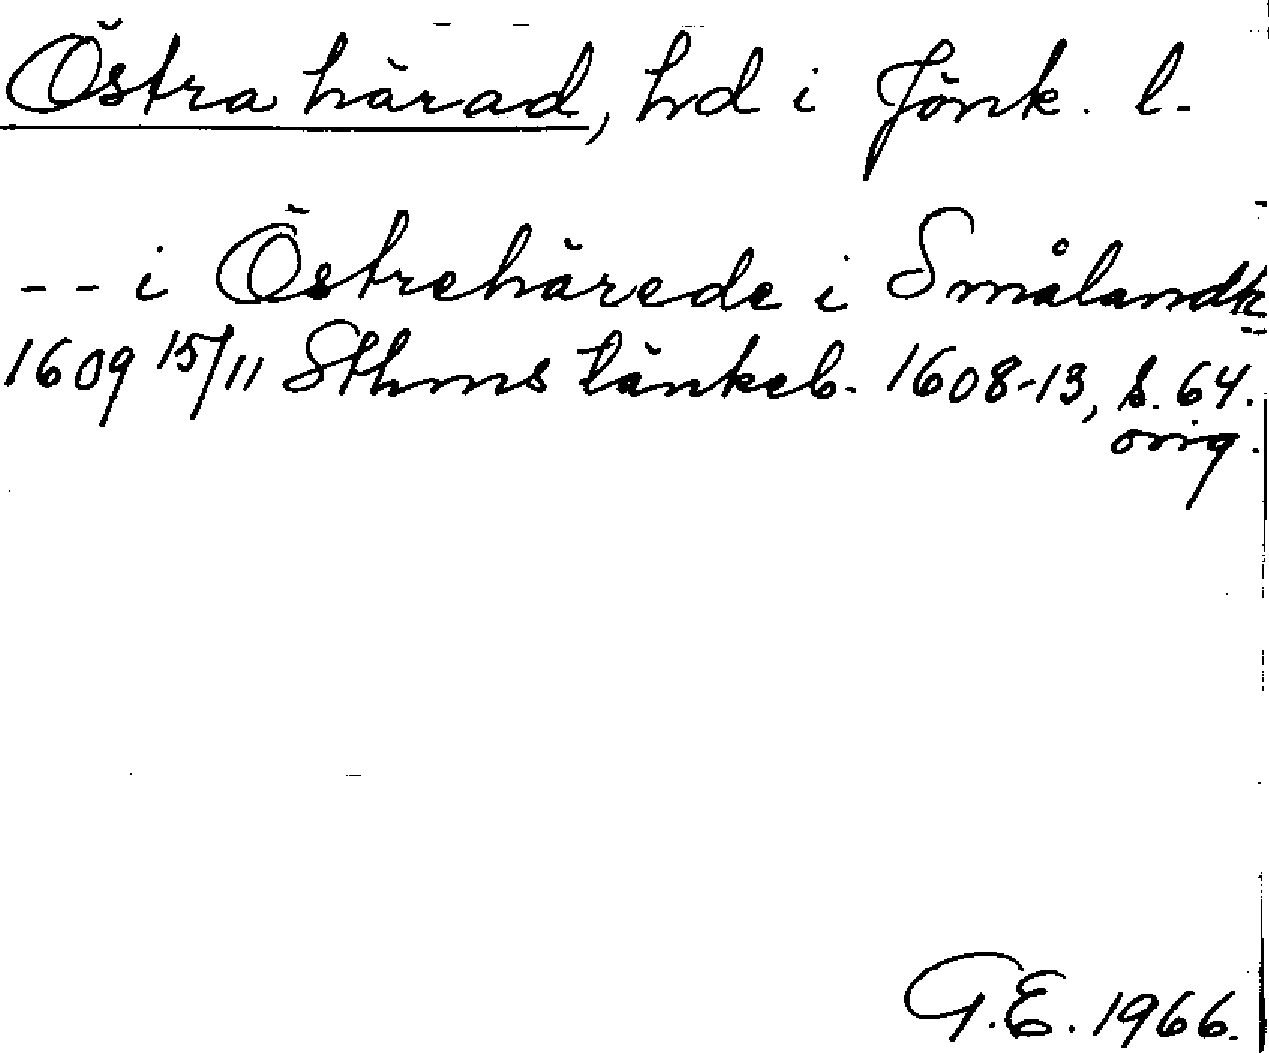 Östra härad, hd i Jönk. l.
-- i Östrehärede i Smålandh
1609 15/11 Sthms tänkeb. 1608-13, s. 64.
orig.
G.E. 1966.